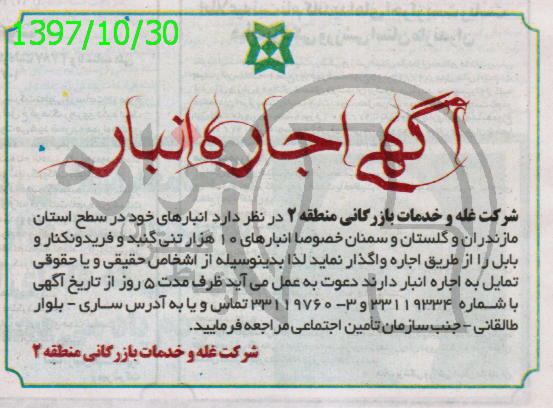 1397/10/30
آگهی اجاره انبار
شرکت غله و خدمات بازرگانی منطقه ۲ در نظر دارد انبارهای خود در سطح استان
مازندران و گلستان و سمنان خصوصا انبارهای ۱۰ هزار تنی گنبد و فریدونکنار و
بابل را از طریق اجاره واگذار نماید لذا بدینوسیله از اشخاص حقیقی و یا حقوقی
تمایل به اجاره انبار دارند دعوت به عمل می آید ظرف مدت ۵ روز از تاریخ آگهی
با شماره ۳۳۱۱۹۳۳۴ و ۳- ۳۳۱۱۹۷۶۰ تماس و یا به آدرس ساری - بلوار
طالقانی - جنب سازمان تامین اجتماعی مراجعه فرمایید.
شرکت غله و خدمات بازرگانی منطقه ۲